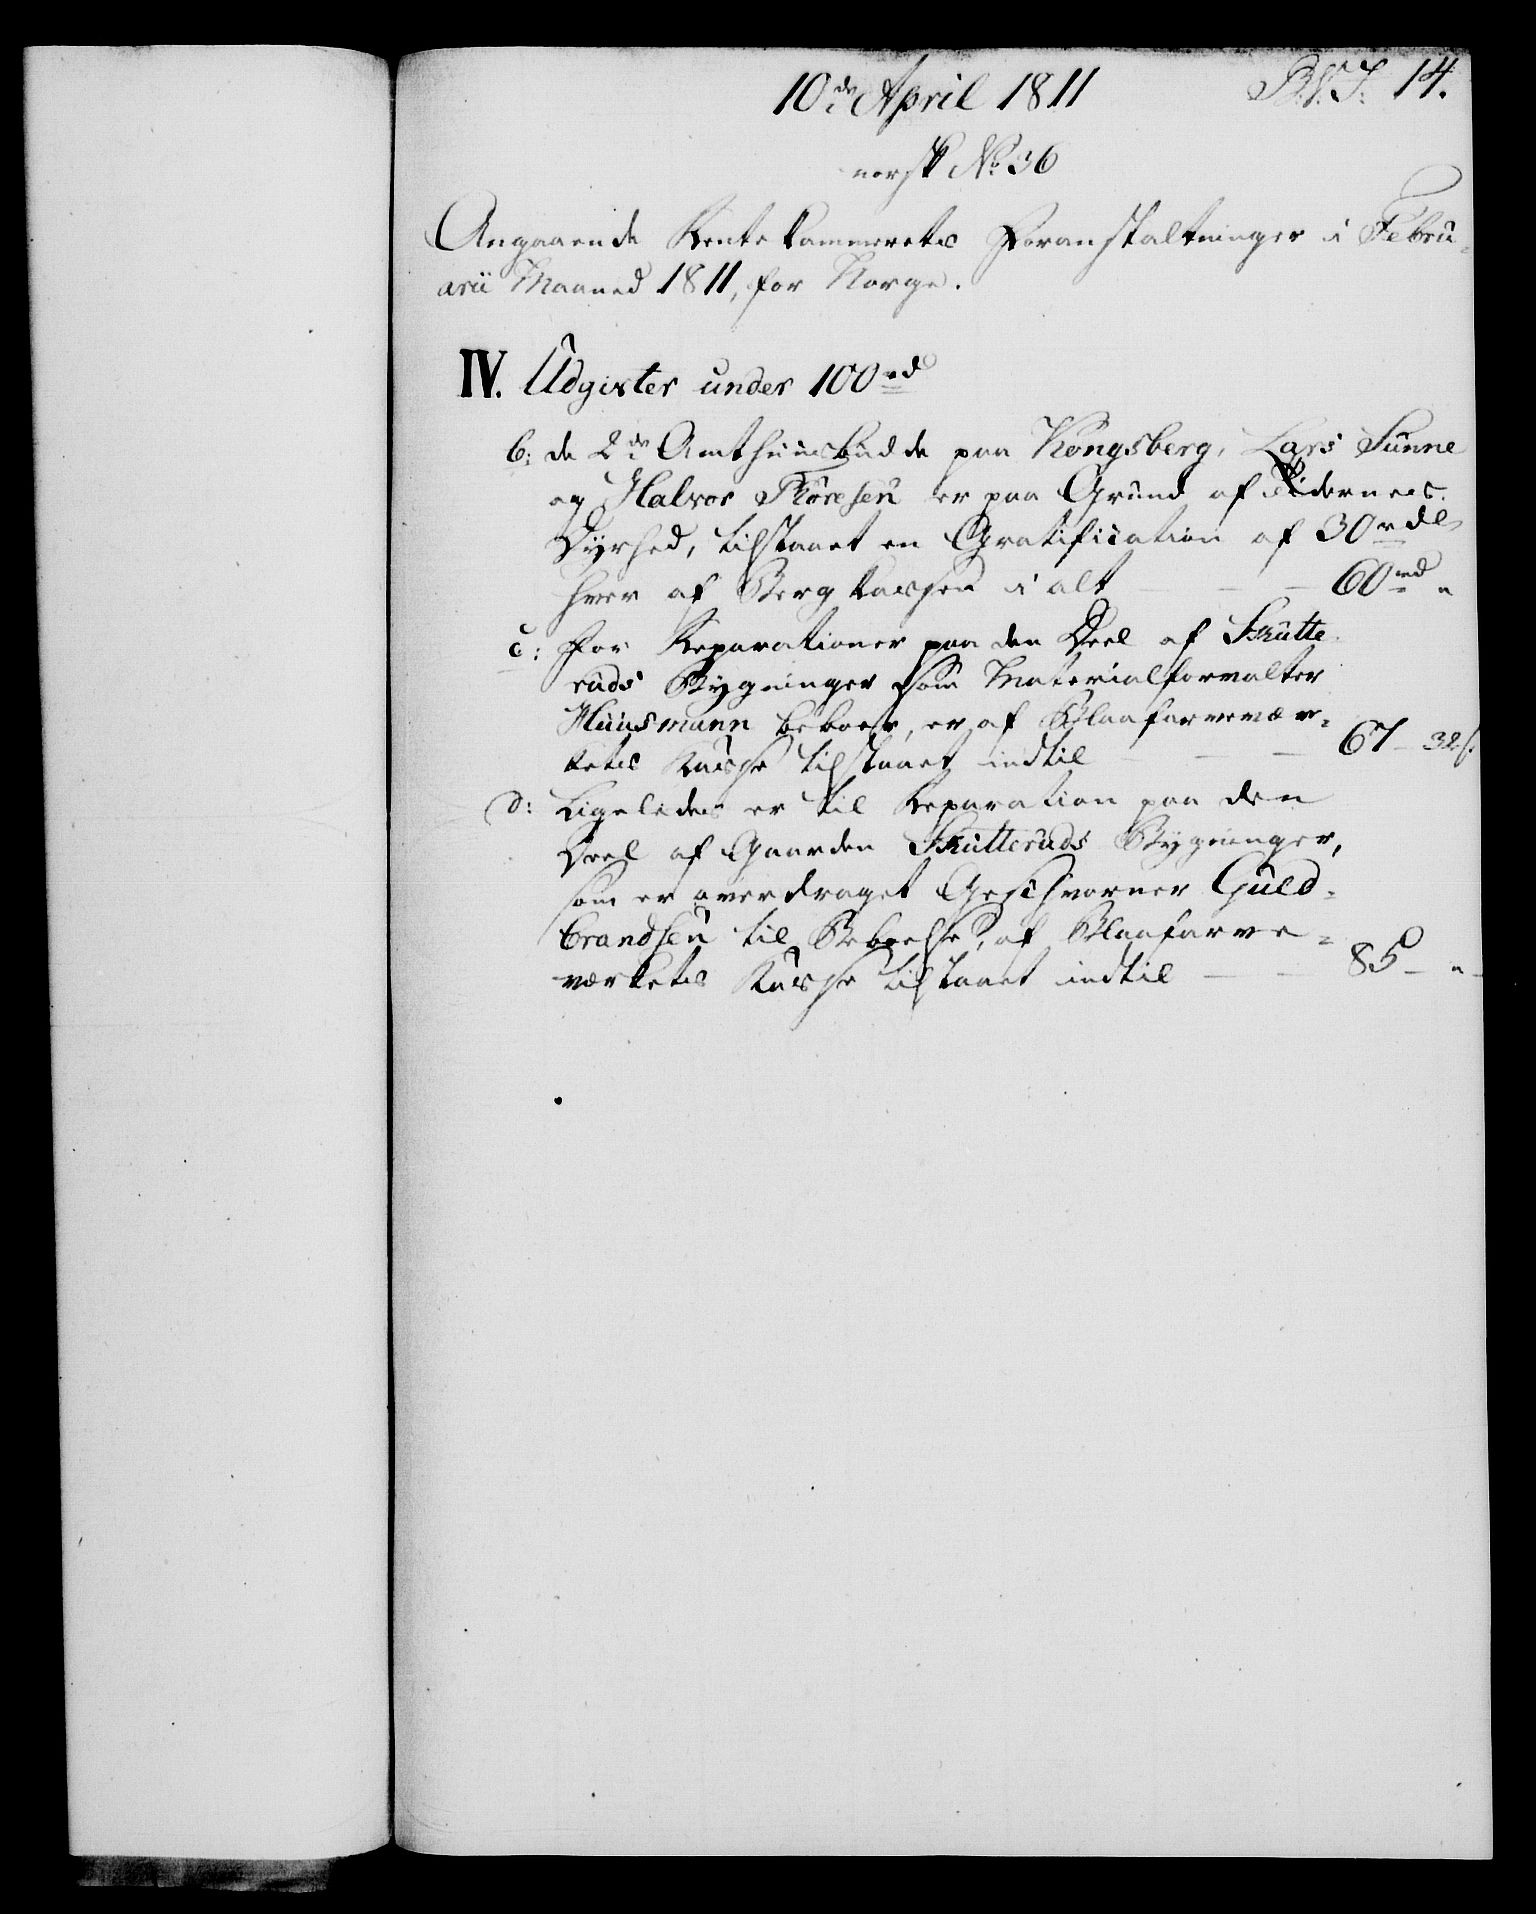 10de April 1811
B. V. J. 14.
norsk No 36
Angaaende Rentekammerets Foranstaltninger i Febru-
arii Maaned 1811, for Norge.
IV. Udgivter under 100 rd
b: de 2de Amthuusbudde paa Kongsberg, Lars Sunne
og Halvor Thoresen er paa Grund af Tidernes
Dyrhed, tilstaaet en Gratification af 30 rdl
hver af Bergkassen i alt — — — 60 rd "
c: For Reparationer paa den Deel af Skutte-
ruds Bygninger som Materialforvalter
Huusmann beboer, er af Blaafarvevær-
kets Kasse tilstaaet indtil — — — 67 - 32 s:
d: Ligeledes er til Reparation paa den
Deel af Gaarden Skutteruds Bygninger,
som er overdraget Geschvorner Guld-
brandsen til Beboelse, af Blaafarve-
værkets Kasse tilstaaet indtil — — 85 - " -